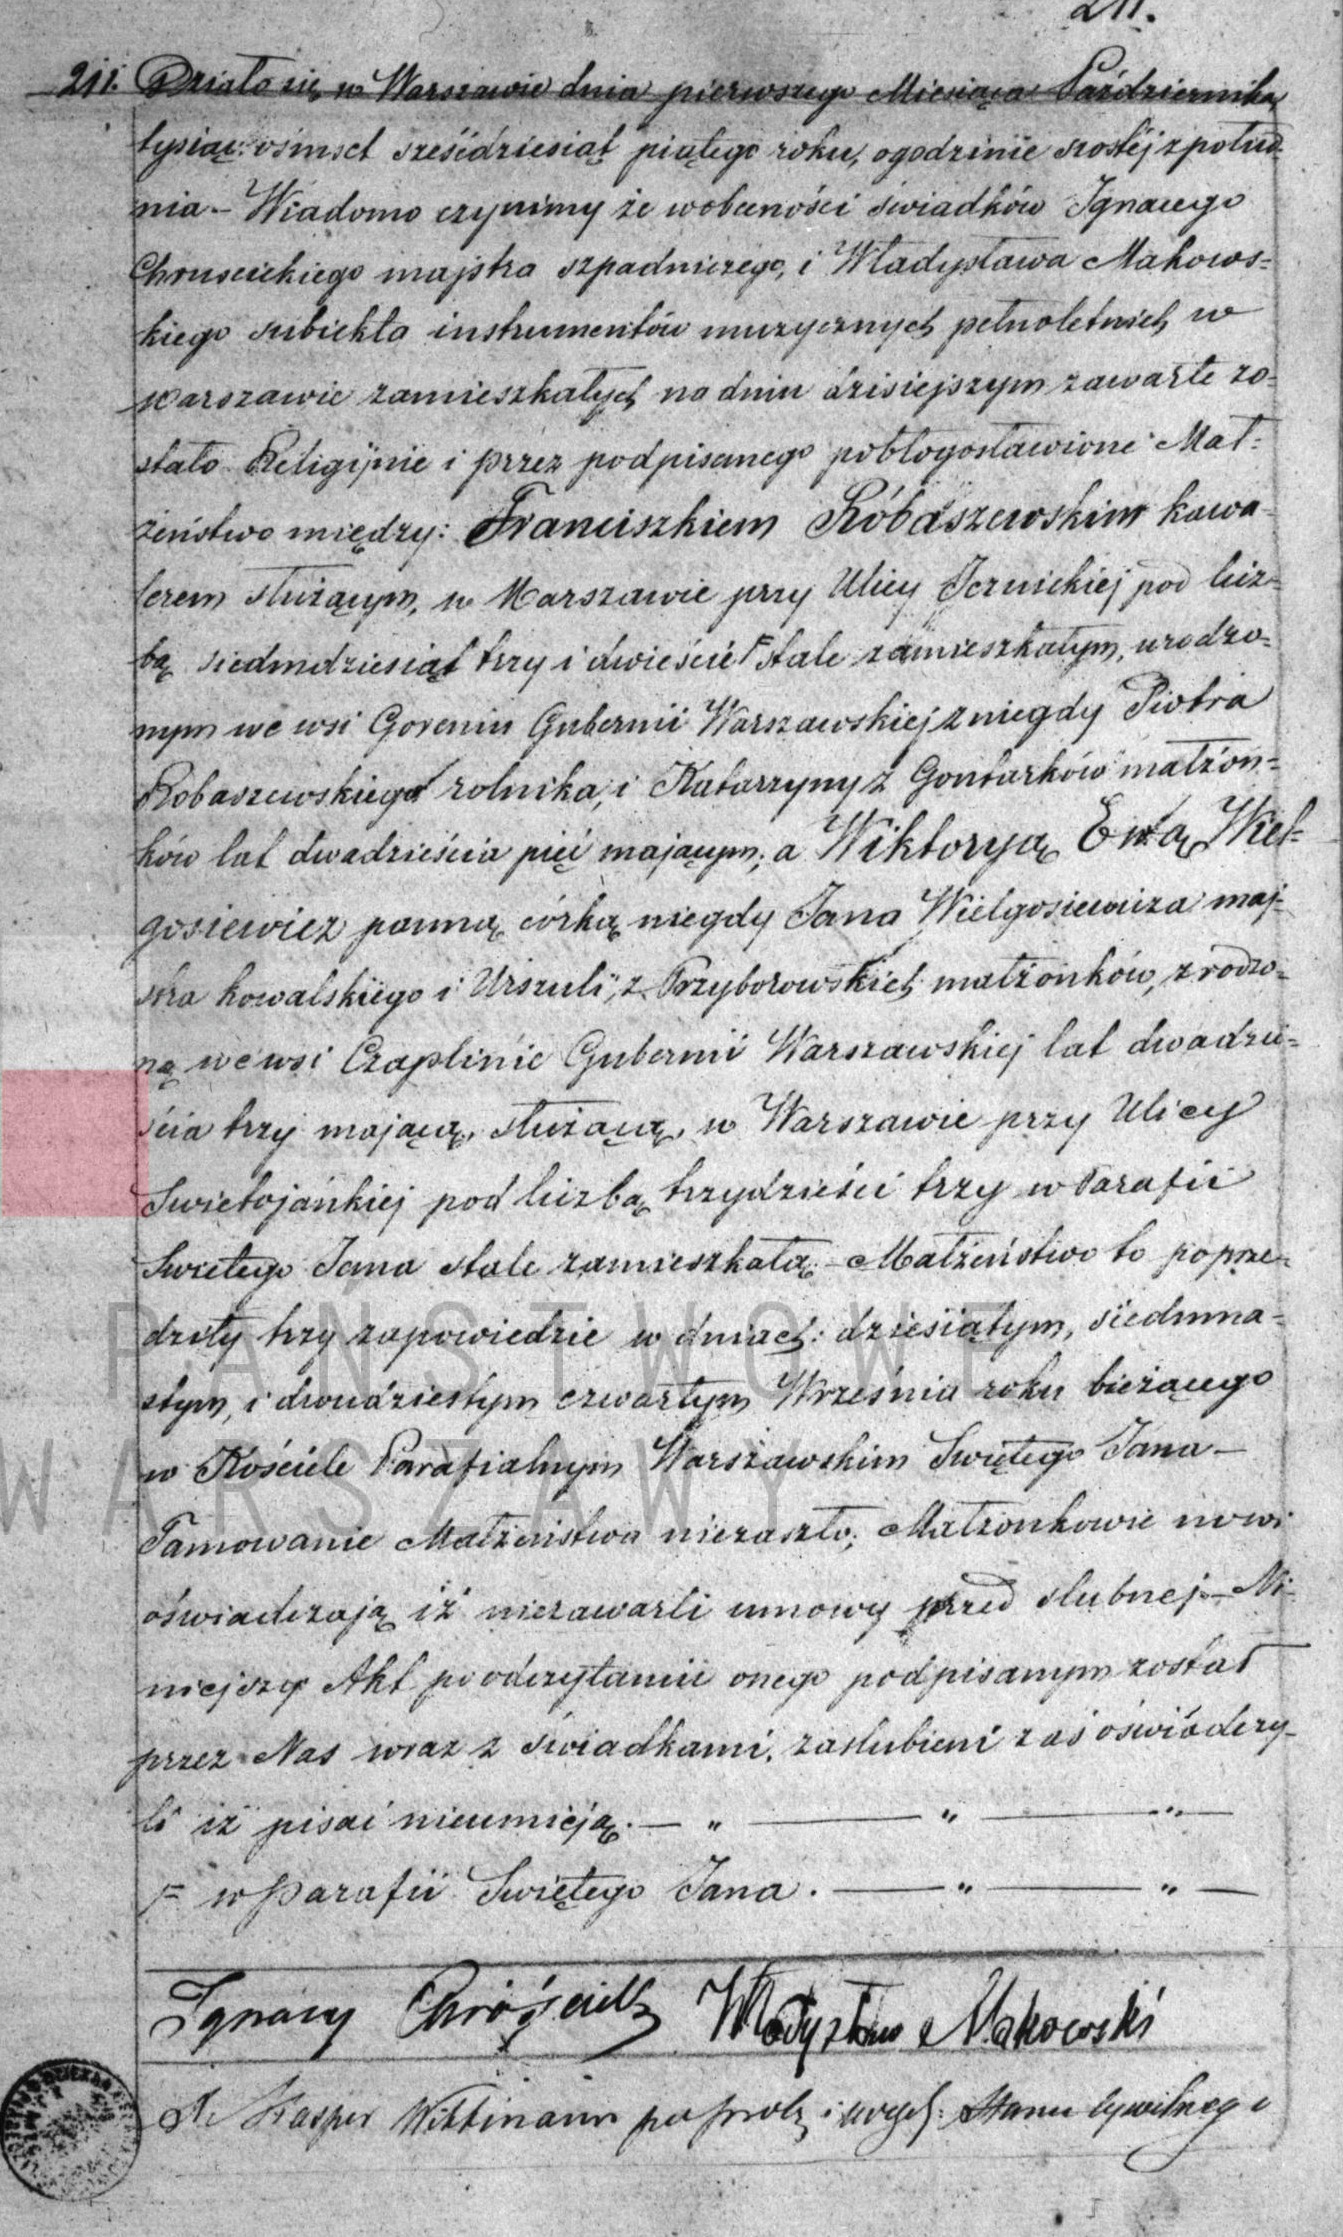 211.
211. Działo się w Warszawie dnia pierwszego Miesiąca Października
tysiąc ośmset sześćdziesiąt piątego roku, ogodzinie szóstéj z połud-
nia – Wiadomo czynimy że wobecności świadków Ignacego
Chruscickiego majstra szpadniczego, i Władysława Makows=
kiego subiekta instrumentów muzycznych pełnoletnich w
warszawie zamieszkałych na dniu dzisiejszym zawarte zo=
stało Religijnie i przez podpisanego pobłogosławione Mał=
żeństwo między: Franciszkiem Róbaszewskim kawa-
lerem służącym, w Warszawie przy Ulicy Jezuickiej pod licz-
bą siedmdziesiąt trzy i dwieście F stale zamieszkałym, urodzo-
nym we wsi Goreniu Gubernii Warszawskiej z niegdy Piotra
Robaszewskiego rolnika, i Katarzyny z Gontarków małżon=
ków lat dwadzieścia pięć mającym; a Wiktoryą Ewą Wiel-
gosiewicz panną, córką niegdy Jana Wielgosiewicza maj-
stra kowalskiego i Urszuli, z Przyborowskich małżonków, zrodzo-
ną we wsi Czaplinie Gubernii Warszawskiej lat dwadzie=
ścia trzy mającą, służącą, w Warszawie przy Ulicy
Swietojańkiej pod liczbą trzydzieści trzy w Parafii
Swiętego Jana stale zamieszkałą – Małżeństwo to poprze-
dziły trzy zapowiedzie w dniach: dziesiątym, siedmna-
stym, i dwudziestym czwartym Września roku bieżącego
w Kościele Parafialnym Warszawskim Swiętego Jana –
Tamowanie Małżeństwa niezaszło; Małżonkowie nowi
oświadczają iż niezawarli umowy przed slubnej – Ni-
niejszy Akt po odczytaniu onego podpisanym został
przez Nas wraz z świadkami, zaslubieni zaś oświadczy-
li iż pisać nieumieją. — „ — „ — „ —
F w Parafii Swiętego Jana. — „ — „ —
Ignacy Chróścicki Władysław Makowski
X. Kasper Wittmann Stanu Cywilnego
PAŃSTWOWE
WARSZAWY